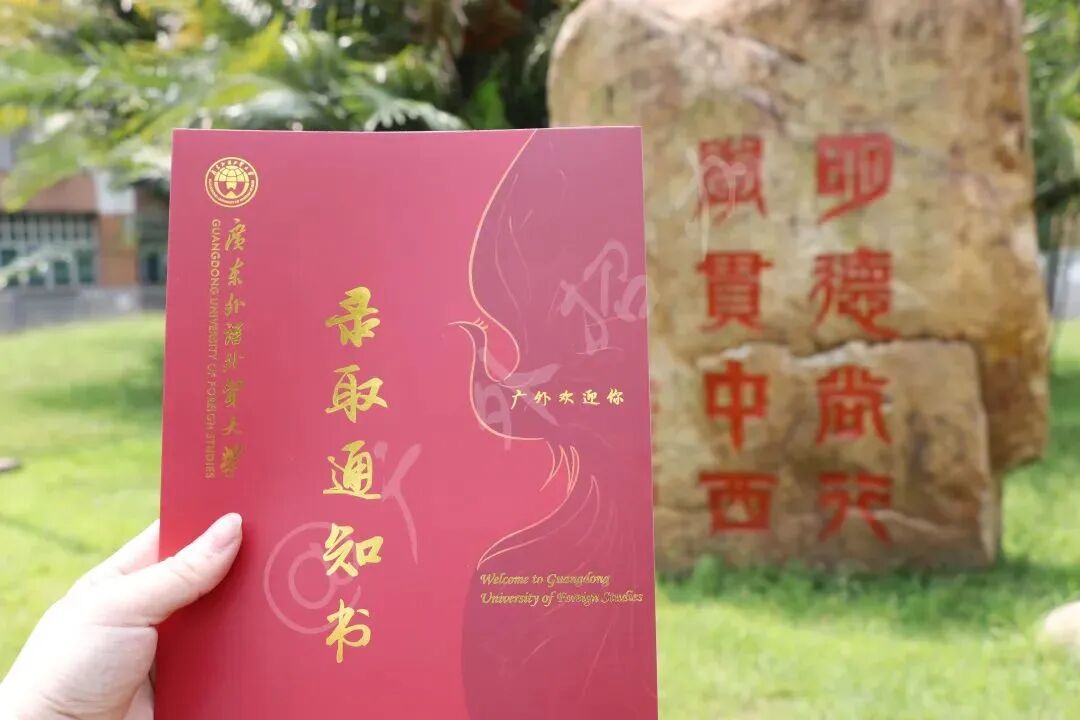 廣东外語外貿大學
GUANGDONG UNIVERSITY OF FOREIGN STUDIES
录取通知书
广外欢迎你
Welcome to Guangdong
University of Foreign Studies
明德尚行
學貫中西